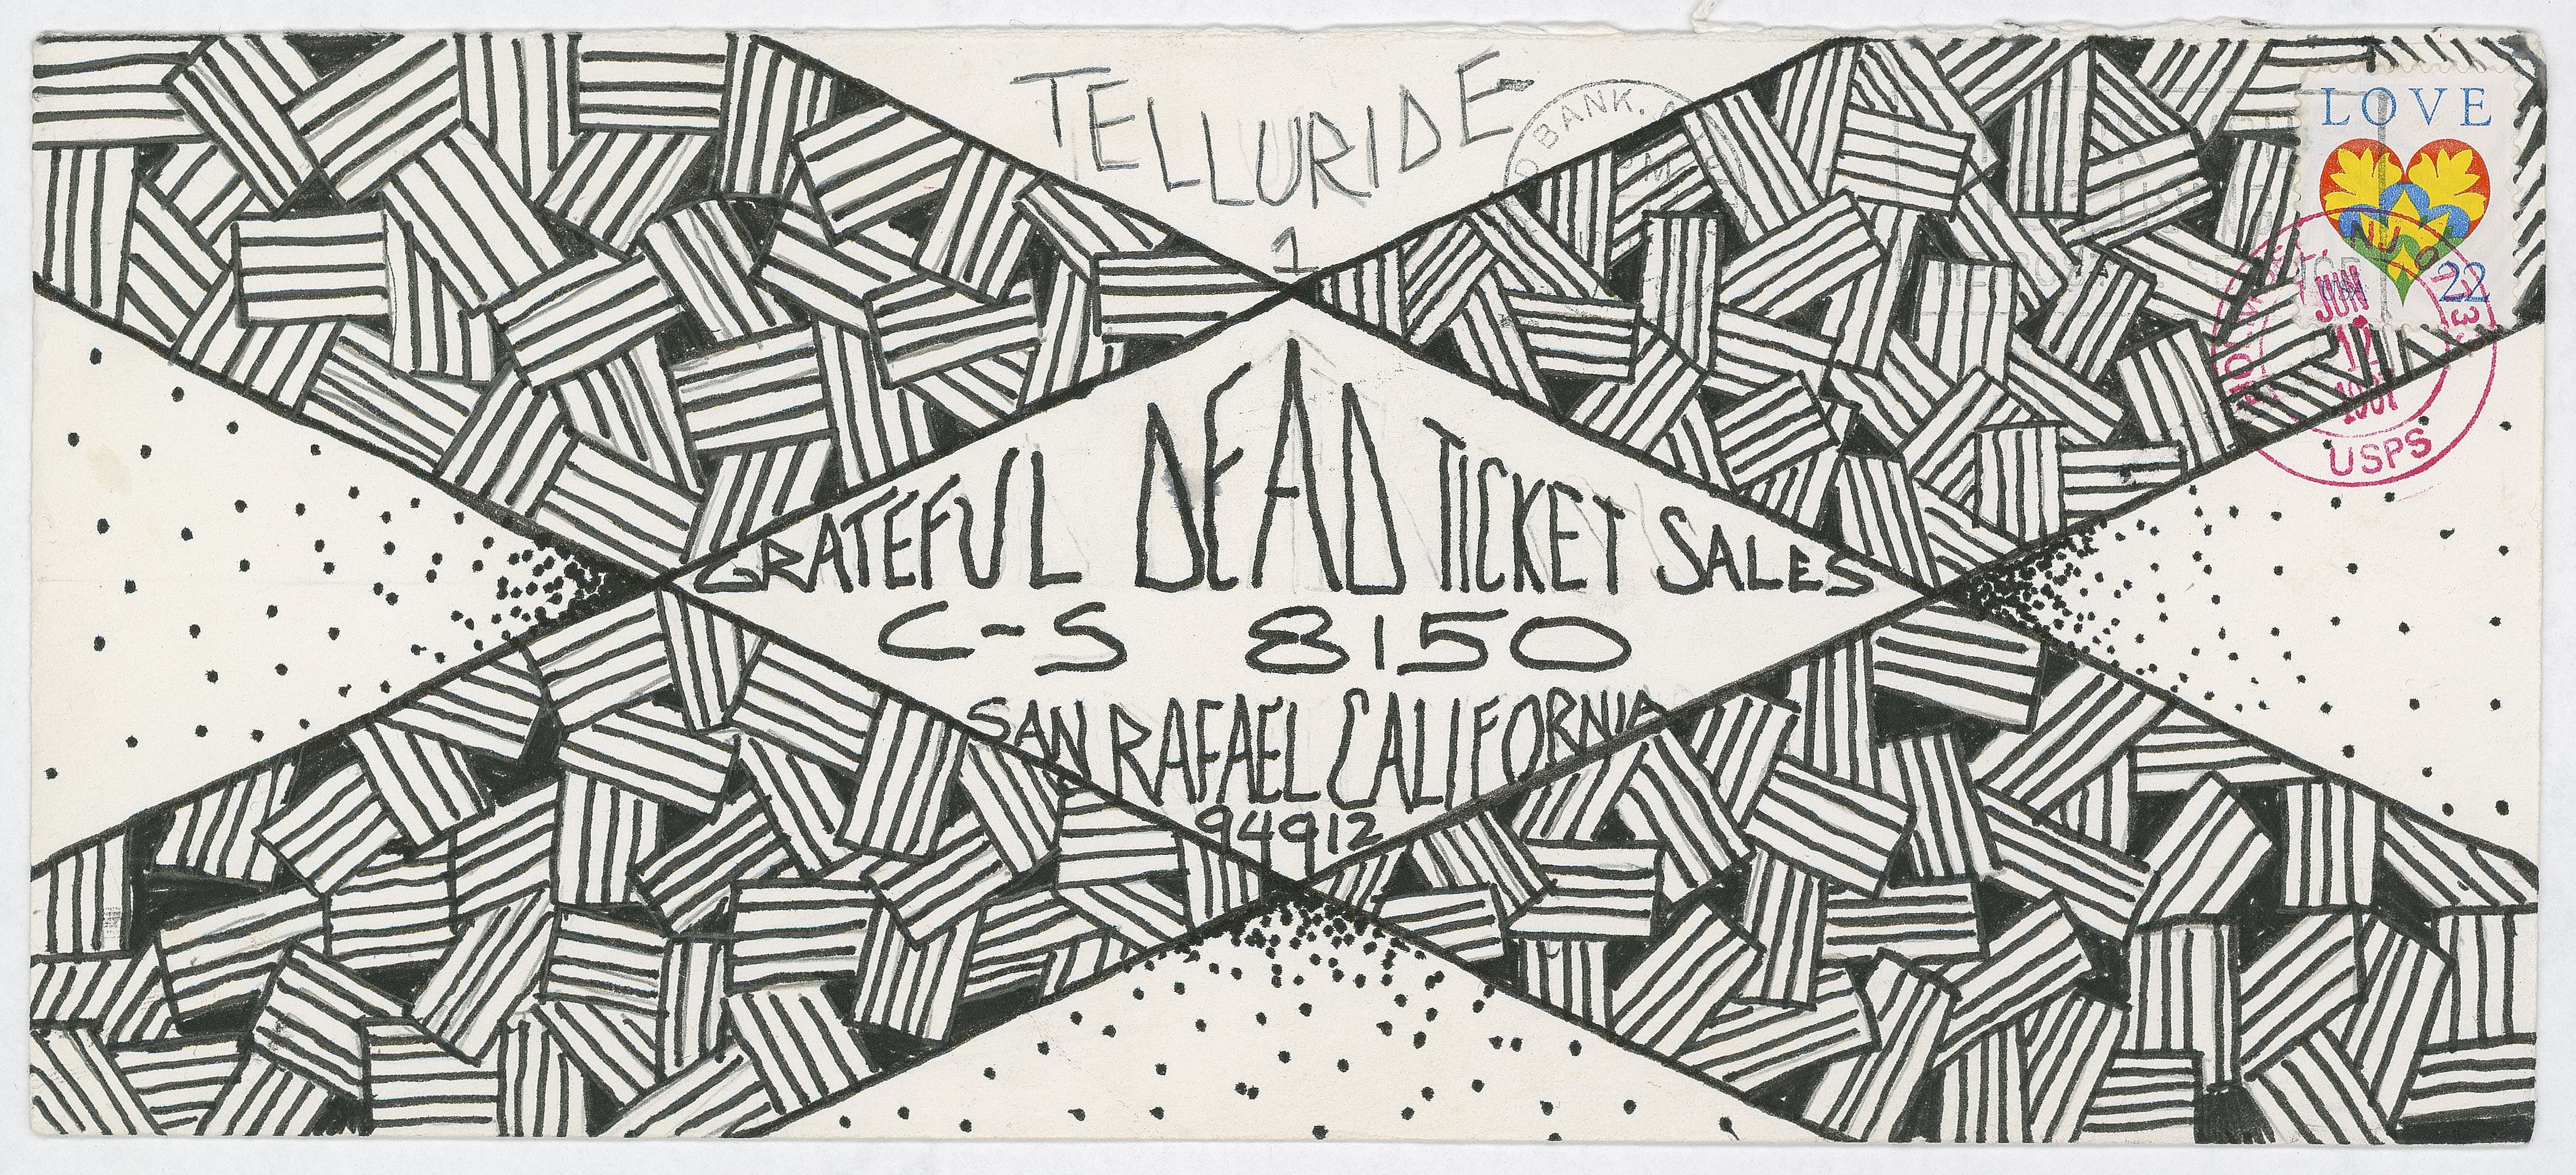 TELLURIDE
1
LOVE
22
JUN
12
1987
USPS
GRATEFUL DEAD TICKET SALES
C-S 8150
SAN RAFAEL CALIFORNIA
94912